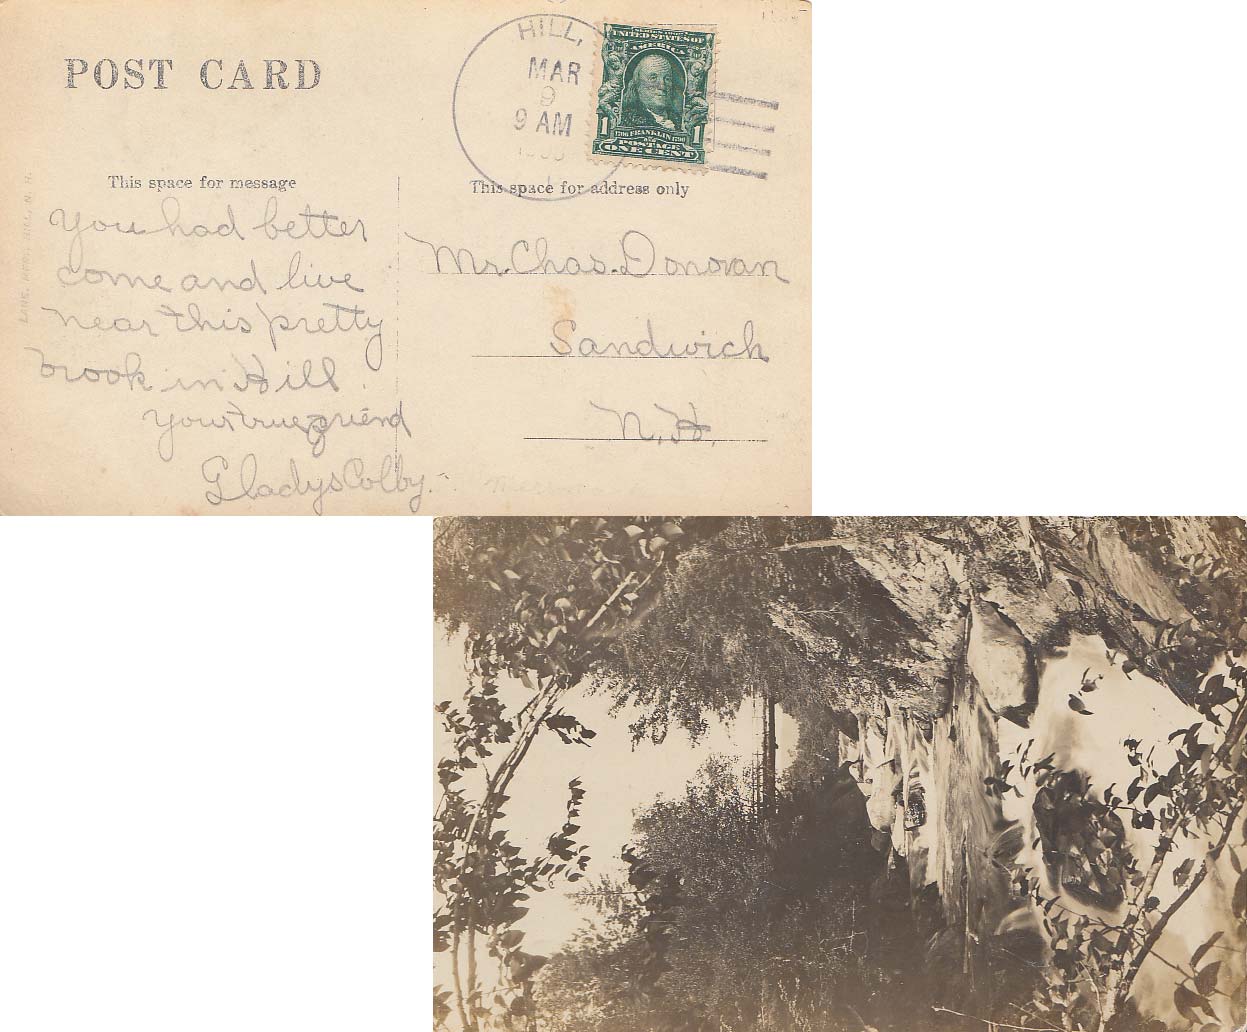 POST CARD
HILL,
MAR
9
9 AM
SERIES 1902
UNITED STATES OF
AMERICA
1 1
1706 FRANKLIN 1790
POSTAGE
ONE CENT
This space for message
This space for address only
You had better
come and live
near this pretty
brook in Hill.
Your true friend
Gladys Colby.
Mr. Chas. Donovan
Sandwich
N.H.
HILL, N. H.